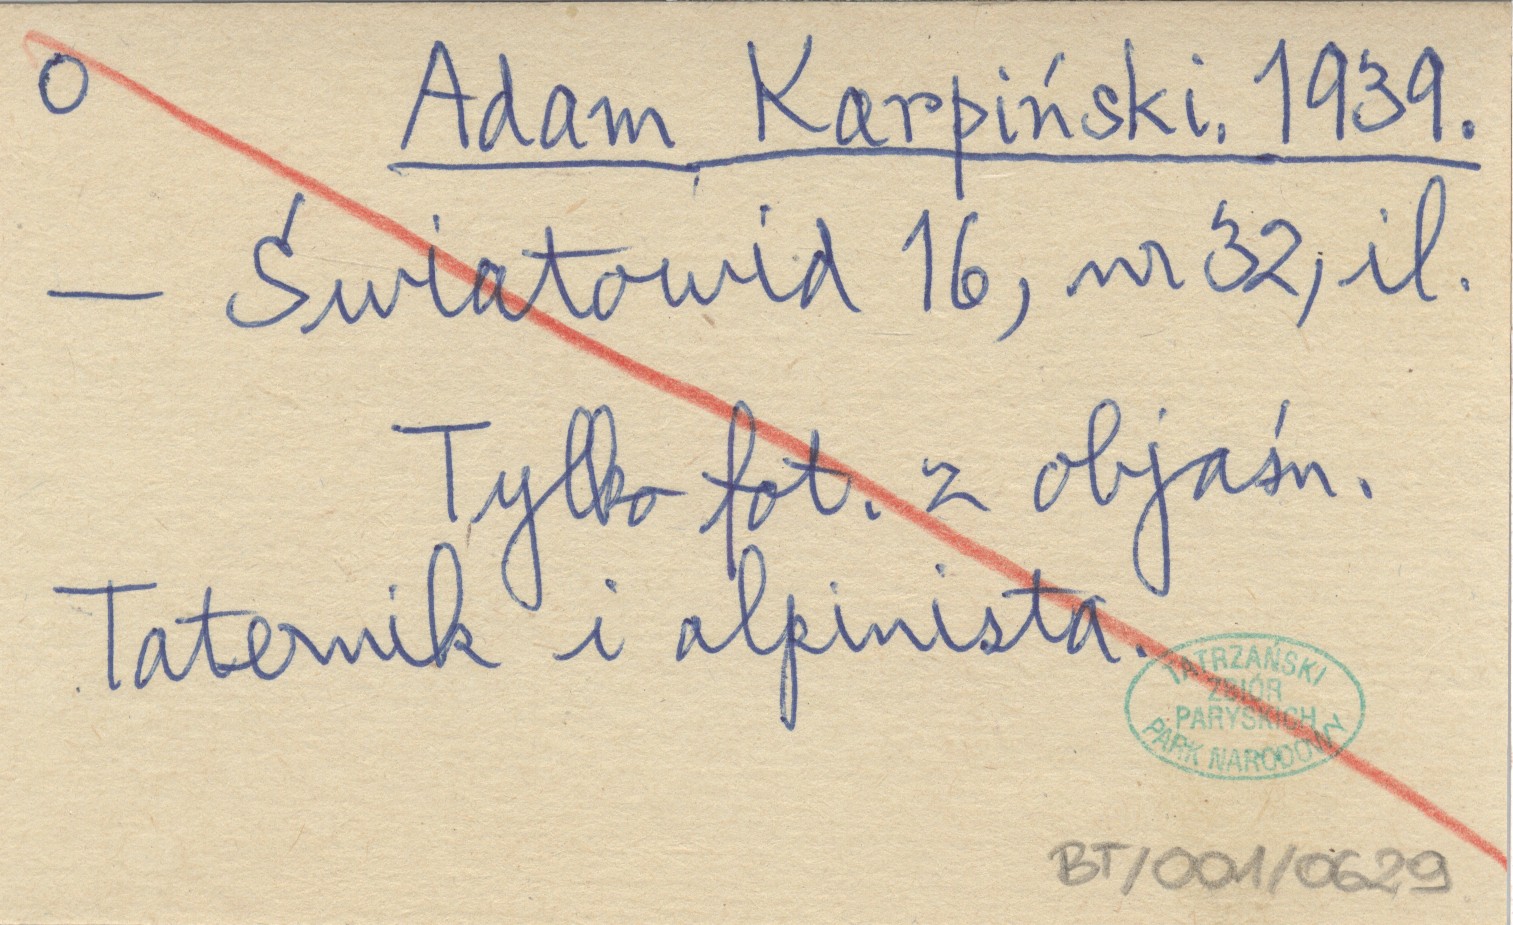 O Adam Karpiński. 1939.
— Światowid 16, nr 32, il.
Tylko fot. z objaśn.
Taternik i alpinista.
TATRZAŃSKI
ZBIÓR
PARYSKICH
PARK NARODOWY
BT/001/0629